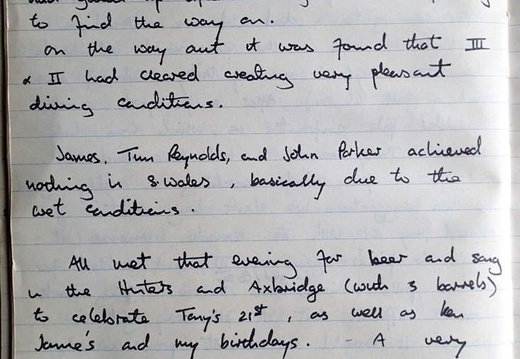 to find the way on.
on the way out it was found that III
& II had cleared creating very pleasant
diving conditions.
James, Tim Reynolds, and John Parker achieved
nothing in S. Wales, basically due to the
wet conditions.
All met that evening for beer and song
in the Hunters and Axbridge (with 3 barrels)
to celebrate Tony's 21st, as well as Ken
Jame's and my birthdays. - A very